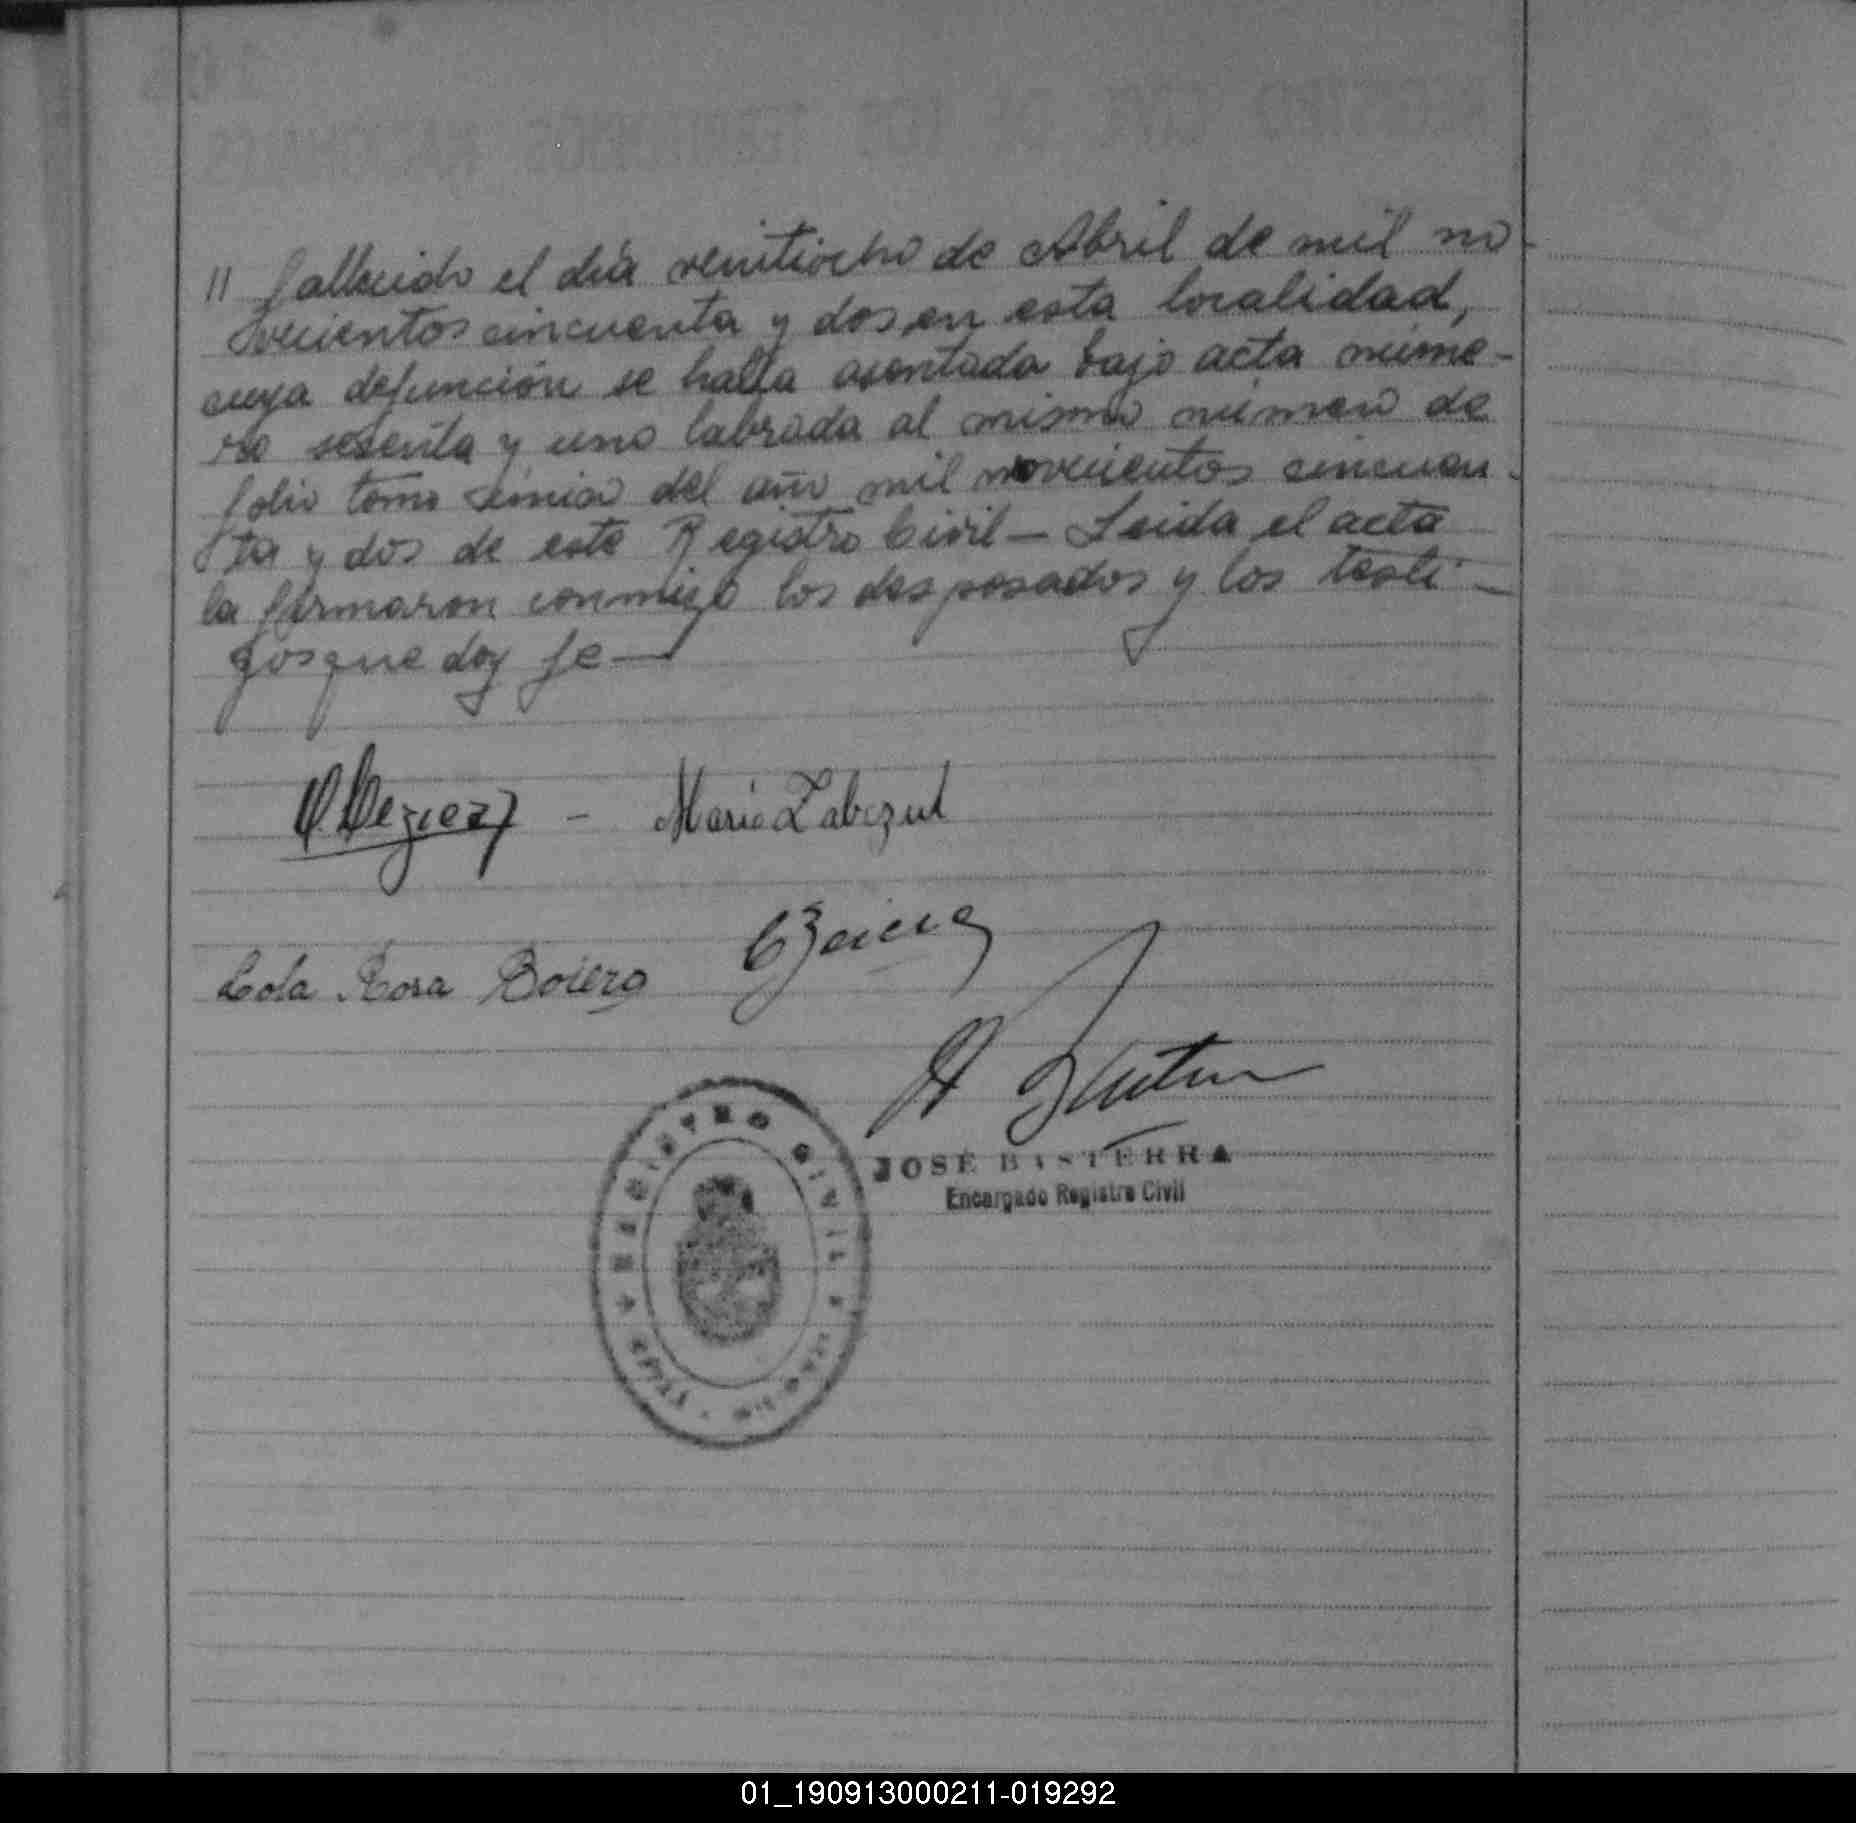 11 fallecido el día veintiocho de Abril de mil no-
vecientos cincuenta y dos, en esta localidad,
cuya defunción se halla asentada bajo acta núme-
ro sesenta y uno labrada al mismo número de
folio tomo único del año mil novecientos cincuen-
ta y dos de este Registro Civil — Leida el acta
la firmaron conmigo los desposados y los testi-
gos que doy fe —
Maria Zabezul
Lola Rosa Boiero
REGISTRO CIVIL
JOSÉ BASTERRA
Encargado Registro Civil
01_190913000211-019292